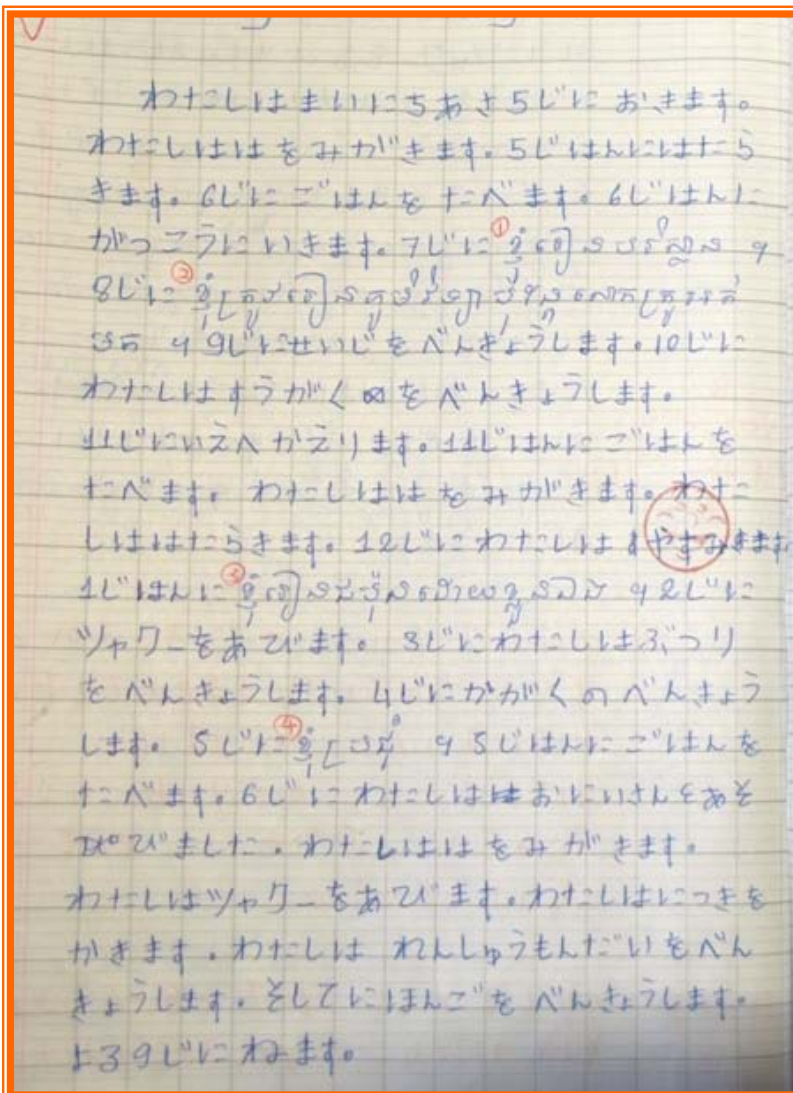 わたしはまいにちあさ5じに おきます。
わたしははをみがきます。5じはんにはたら
きます。6じにごはんをたべます。6じはんに
がっこうにいきます。7じに①ខ្ញុំរៀន
8じに②ខ្ញុំ
9じにせいじをべんきょうします。10じに
わたしはすうがくをべんきょうします。
11じにいえへかえります。11じはんにごはんを
たべます。わたしははをみがきます。わた
しははたらきます。12じにわたしはやすみます
1じはんに③ខ្ញុំរៀន 2じに
ツャワーをあびます。3じにわたしはぶつり
をべんきょうします。4じにかがくのべんきょう
します。5じに④ខ្ញុំ 5じはんにごはんを
たべます。6じにわたしはおにいさんをあそ
びました。わたしははをみがきます。
わたしはツャワーをあびます。わたしはにっきを
かきます。わたしは れんしゅうもんだいをべん
きょうします。そしてにほんごをべんきょうします。
よる9じにねます。